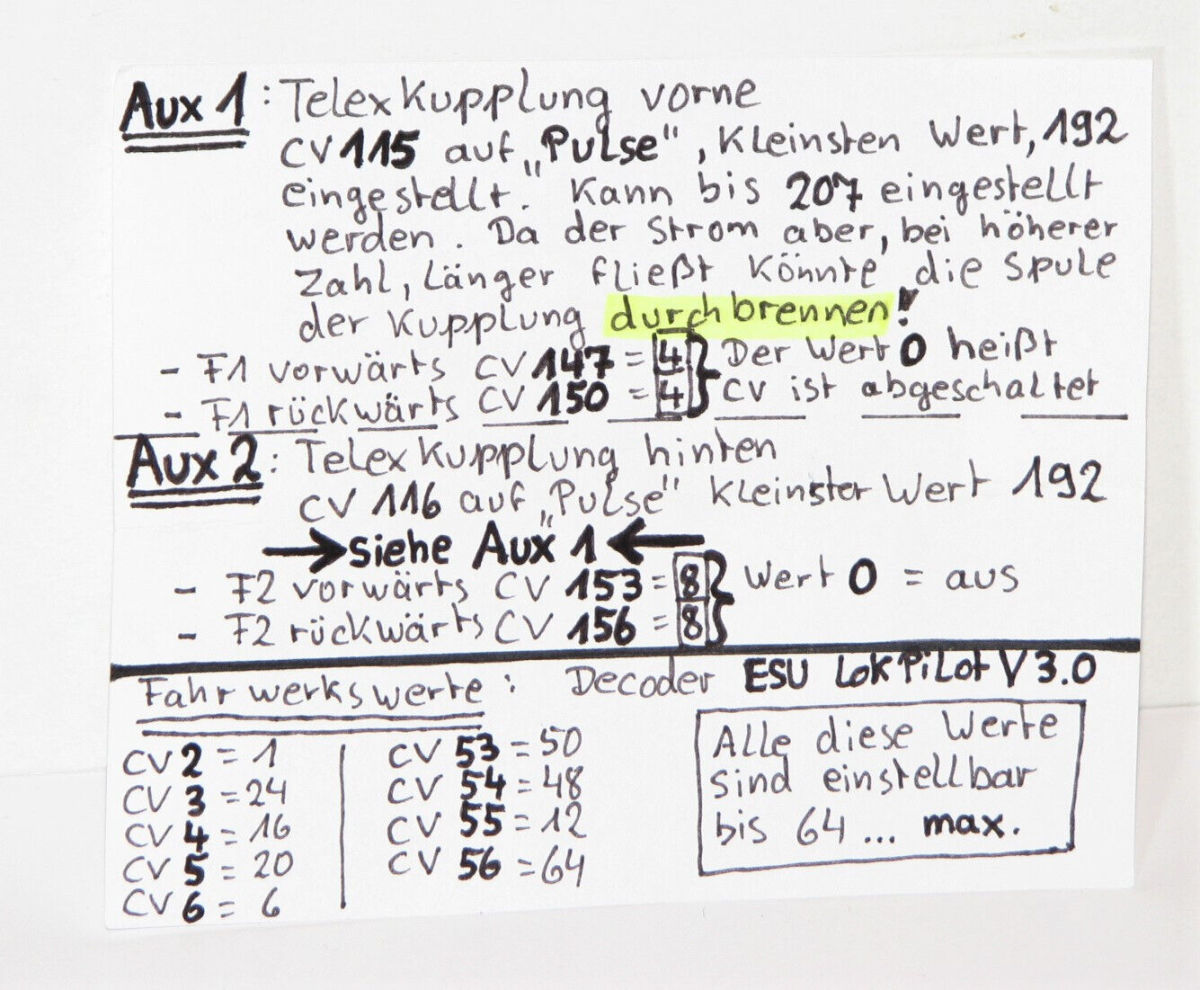 Aux 1: Telex Kupplung vorne
CV 115 auf „Pulse", kleinsten Wert, 192
eingestellt. Kann bis 207 eingestellt
werden. Da der Strom aber, bei höherer
Zahl, länger fließt könnte die Spule
der Kupplung durchbrennen!
- F1 vorwärts CV 147 = 4 } Der Wert 0 heißt
- F1 rückwärts CV 150 = 4 } CV ist abgeschaltet
Aux 2: Telex Kupplung hinten
CV 116 auf „Pulse" kleinster Wert 192
→ siehe Aux 1 ←
- F2 vorwärts CV 153 = 8 } Wert 0 = aus
- F2 rückwärts CV 156 = 8 }
Fahrwerkswerte: Decoder ESU LokPilot V 3.0
CV 2 = 1
CV 3 = 24
CV 4 = 16
CV 5 = 20
CV 6 = 6
CV 53 = 50
CV 54 = 48
CV 55 = 12
CV 56 = 64
Alle diese Werte
sind einstellbar
bis 64 ... max.